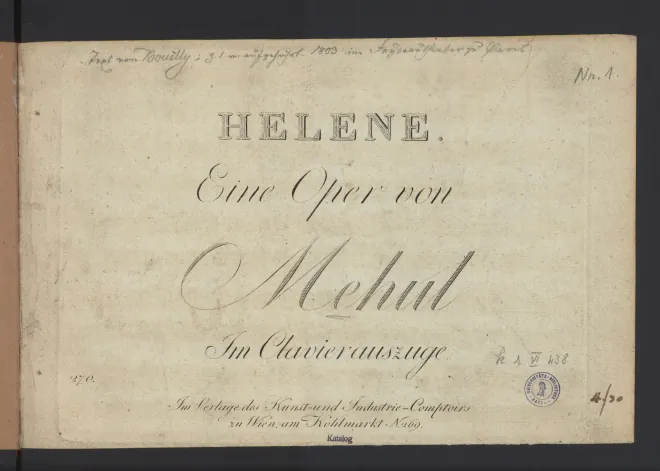 Text von Bouilly; z. 1. m. aufgeführt 1803 im Feydeautheater zu Paris
Nn. 1.
HELENE.
Eine Oper von
Mehul
Im Clavierauszuge
270.
k 1 VI 438
Im Verlage des Kunst-und Industrie-Comptoirs
zu Wien, am Kohlmarkt N. 269.
Katalog